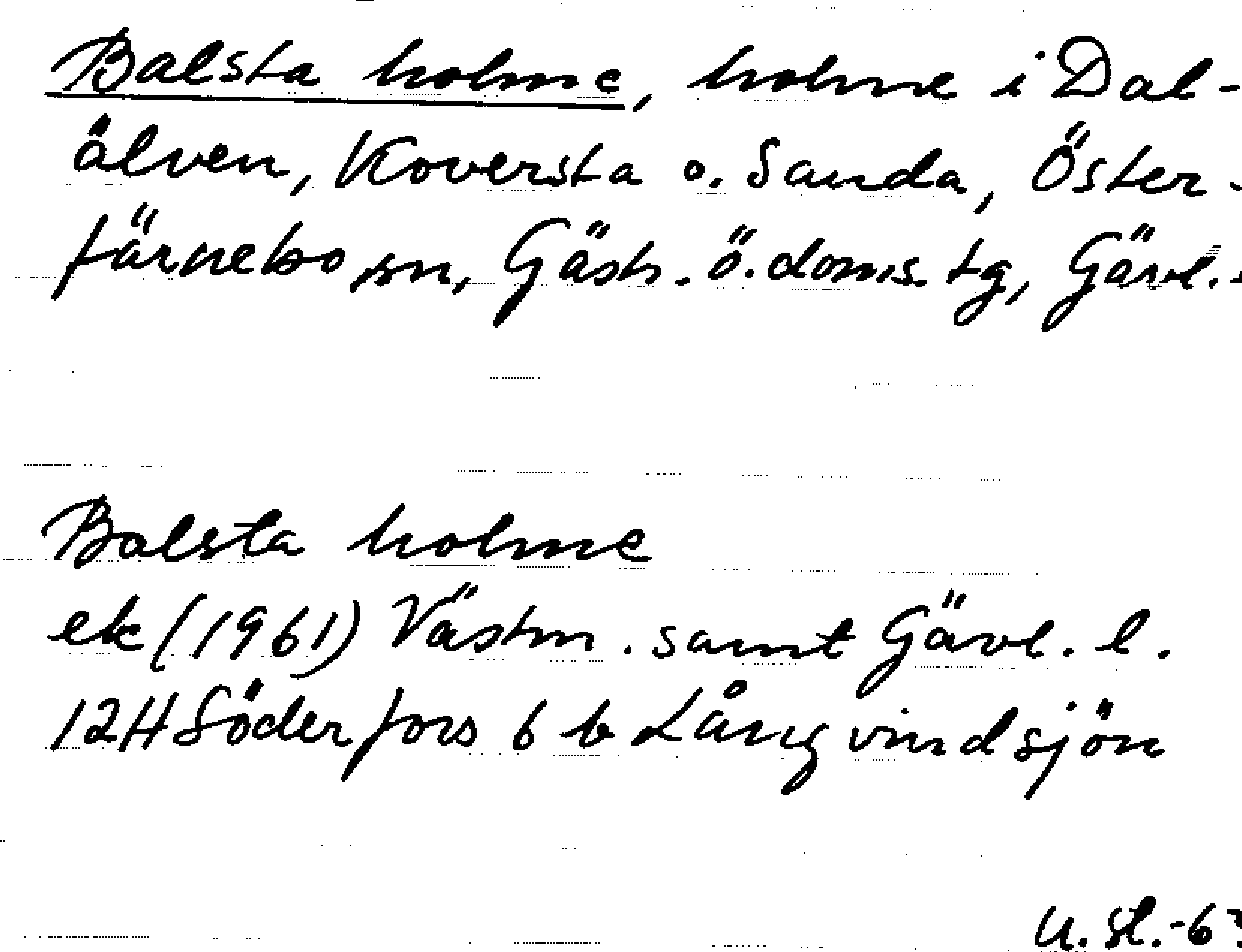 Balsta holme, holme i Dal-
älven, Koversta o. Sanda, Öster-
färnebo sn, Gästr. ö. doms. tg, Gävl.
Balsta holme
ek (1961) Västm. samt Gävl. l.
12H Söderfors 6 b Långvindsjön
U. St. -63